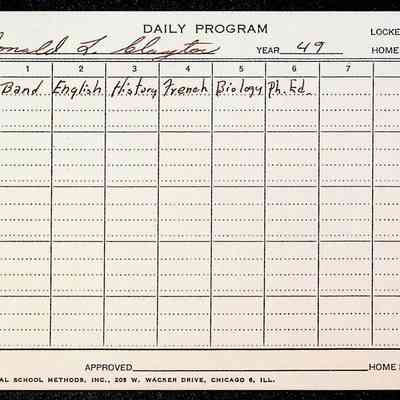 DAILY PROGRAM LOCKE
onald L. Clayton YEAR 49 HOME
1 2 3 4 5 6 7
Band English History French Biology Ph. Ed.
APPROVED HOME
AL SCHOOL METHODS, INC., 205 W. WACKER DRIVE, CHICAGO 6, ILL.